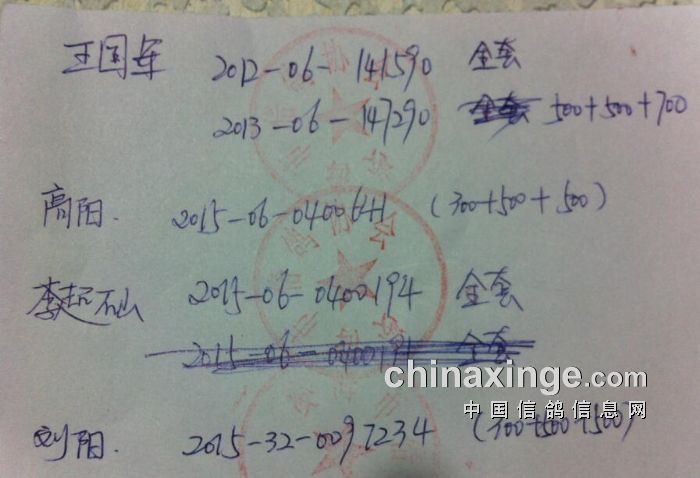 王国军 2012-06-141590 全套
2013-06-147290 全套 500+500+700
高阳. 2015-06-0400641 (300+500+500)
李超 石山 2015-06-0400194 全套
2015-06-0400191 全套
chinaxinge.com
中国信鸽信息网
刘阳. 2015-32-0097234 (300+500+500)